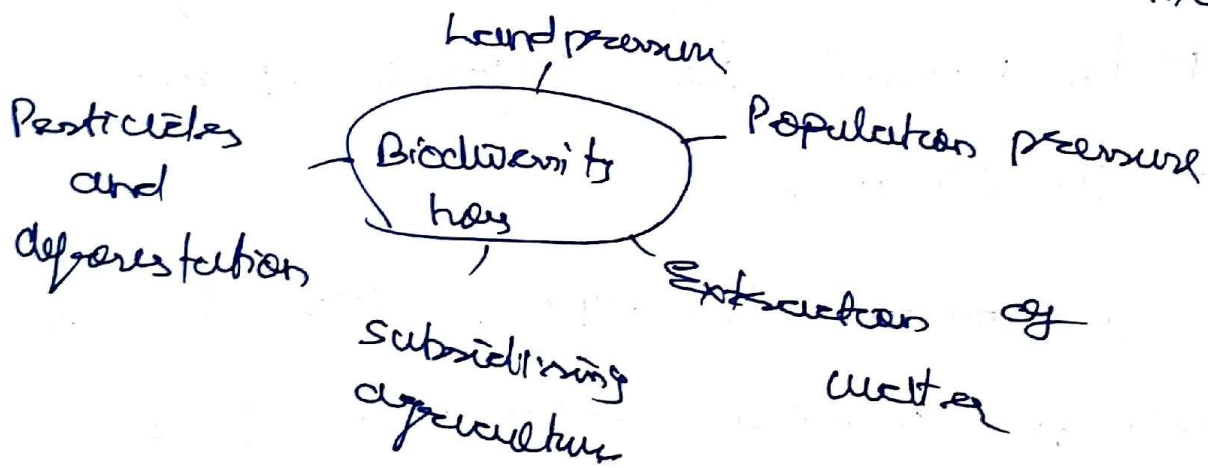 Land pressure
Pesticides
and
deforestation
Biodiversity
Population pressure
Extraction of
water
subsidising
agriculture